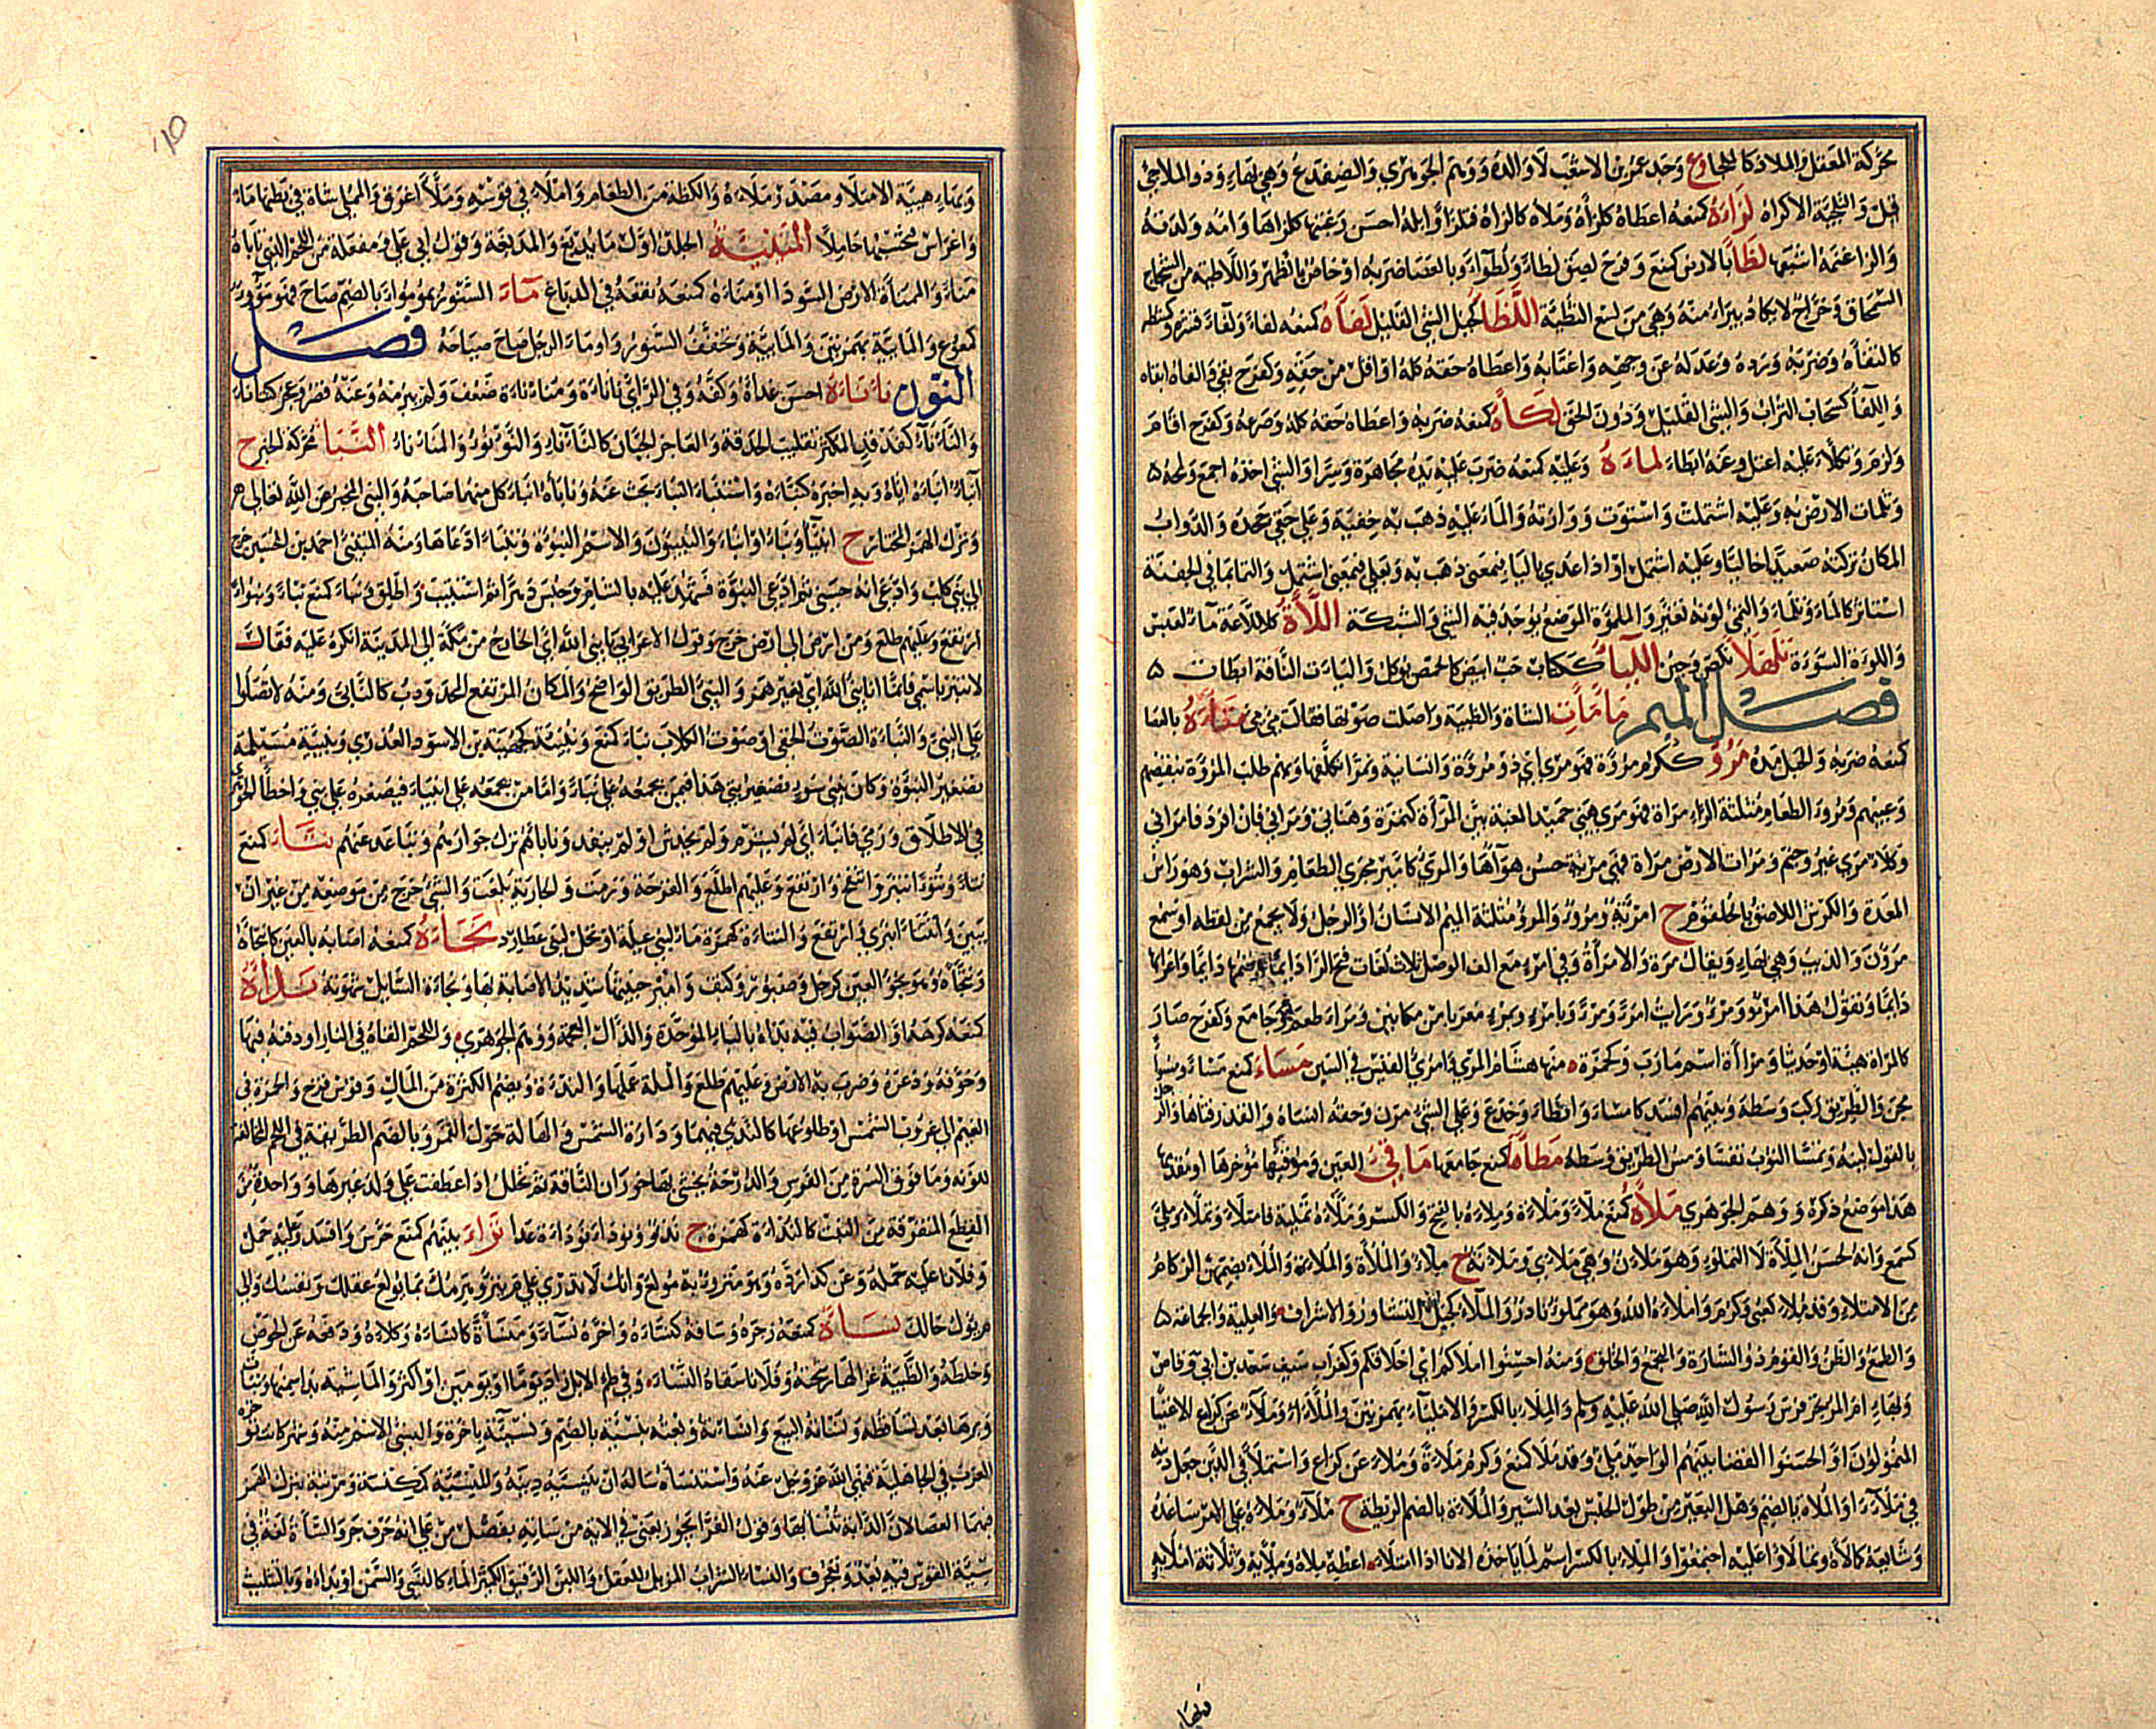 محركة المعقل والملاذ كالملجا وع وجد عمر بن الاشعب لا والده ووهم الجوهري والضفدع وهي بهاء وذو الملاجئ
قيل والتلجئة الاكراه لزأه كمنعه اعطاه كلزأه وملأه كالزأه فتلزأ وابله احسن رعيتها كلزأها وامه ولدته
والزا غنمه اشبعها لطأ بالارض كمنع وفرح لصق لطاء ولطوءا وبالعصا ضربه او خاص بالظهر واللاطئة من الشجاج
السمحاق وخراج لا يكاد يبرا منه وهي من لسع النطئة اللظأ كجبل الشئ القليل لفأه كمنعه لفاء ولفاءً قشره وكشطه
كالتفأه وضربه ورده وعدله عن وجهه واغتابه واعطاه حقه كله او اقل من حقه وكفرح بقي والفاه ابقاه
واللفأ كسحاب التراب والشئ القليل ودون الحق لكأه كمنعه ضربه واعطاه حقه كله وصرعه وكفرح اقام
ولزم وتلكأ عليه اعتل وعنه ابطا لمأه وعليه كمنعه ضرب عليه يده مجاهرة وسرا والشئ اخذه اجمع ولمحه
وتلمات الارض به وعليه اشتملت واستوت ووارته والماء عليه ذهب به خفية وعلى حقي جحده والدواب
المكان تركته صعيدا خاليا وعليه اشتمل او اذا عدي بالبا فبمعنى ذهب به وبعلى فبمعنى اشتمل والتما بما في الجفنة
استاثر كالما وتلما والتمئ لونه تغير والملموة الموضع يوجد فيه الشئ والشبكة اللأة كاللاعة ماء لعبس
واللوة السوءة تلهلأ نكص وجبن اللياء ككتاب حب ابيض كالحمص يوكل والياءت الناقة ابطات
فصل الميم مأمأت الشاة والظبية واصلت صوتها فقالت مئ مئ متأه بالعصا
كمنعه ضربه والحبل مده مرؤ ككرم مروة فهو مرئ اي ذو مروة وانسانية وتمرا تكلفها وبهم طلب المروة بنقيضهم
وعيبهم ومروء الطعام مثلثة الراء مراة فهو مرئ هنئ حميد المغبة بين المرأة كتمرة وهنأني ومرأني فان افرد فامراني
وكلاء مرئ غير وخم ومرات الارض مراة فهي مريئة حسن هواءها والمرئ كامير مجرى الطعام والشراب وهو راس
المعدة والكرش اللاصق بالحلقوم ح امرئة ومروء والمرء مثلثة الميم الانسان او الرجل ولا يجمع من لفظه او سمع
مرؤن والذيب وهي بهاء ويقال مرة والامرأة وفي امرء مع الف الوصل ثلاث لغات فتح الرا دايما وضمها دايما واعرابها
دايما وتقول هذا امرؤ ومرء ورايت امرا ومرءا وبامرء وبمرء معربا من مكانين ومراء طعم وجامع وكفرح صار
كالمراة هيئة او حديثا ومرأة اسم مارب وكحمزة منها هشام المري وامرئ القيس في السين مسأ كمنع مساء ومسوءا
مجن والطريق ركب وسطه وبينهم افسد كامسا وابطا وخدع وعلى الشئ مرن وحقه انساه والقدر فثاها والرجل
بالقول لينه وتمسا الثوب تفسا ومسء الطريق وسطه مطأها كمنع جامعها ماقئ العين وموقئها مؤخرها او مقدمها
هذا موضع ذكره ووهم الجوهري ملأه كمنع ملأ وملأة وملأه بالفتح والكسر وملأه تملئة فامتلأ وتملأ وملئ
كسمع وانه لحسن الملأة لا التملؤ وهو ملآن وهي ملأى وملآنة ح ملاء والملأة والملاءة والملاء بضمهن الزكام
من الامتلاء وقد ملئ كعني وكرم واملأه الله وهو مملوء نادر والملأ كجبل التشاور والاشراف والعلية والجماعة
والطمع والظن والقوم ذوو الشارة والتجمع والخلق ومنه احسنوا املاكم اي اخلاقكم وكغراب سيف سعد بن ابي وقاص
وبهاء ام المرتجز فرس رسول الله صلى الله عليه وسلم والملاء بالكسر والاملئاء بهمزتين والملآء ومليء عن كراع الاغنياء
المتمولون او الحسنوا القضا بينهم الواحد ملئ وقد ملأ كمنع وكرم ملاءة وملاء عن كراع واستملأ في الدين جعل دينه
في ملآء والملاه بالضم وهل البعير من طول الحبس بعد السير والملاءة بالضم الريطة ح ملاء وملاءه على الامر ساعده
وشايعه كمالأه وتمالأوا عليه اجتمعوا والملء بالكسر اسم لما ياخذه الانا اذا امتلأ اعطه ملاه وملأيه وثلاثة املايه
فبها
وبهاء هيئة الامتلاء ومصدر ملاءه والكظة من الطعام واملاه في قوسه وملأ اغرق والمملئ شاة في بطنها ماء
واغراس تحسبها حاملا المنيئة الجلد اول ما يدبغ والمدبغة وقول ابي علي مفعلة من اللحم النئ ياباه
منأ والممنأة الارض السودا ومنأه كمنعه نقعه في الدباغ مآء السنور يموء مواء بالضم صاح فهو مؤوء
كمعوع والمائية بهمزتين والمائية وتخفف السنور واوماء الرجل صاح صياحه فصل
النون نأنأه احسن غذأه وكفه وفي الراي نأنأة ومنأنأة ضعف ولم يبرمه وعنه قصر وعجز كتنأنأ
والنأنأ كفدفد المكثر تقليب الحدقة والعاجز الجبان كالنأناء والنؤنؤ والمنأنأ النبأ محركة الخبر ح
انباء انبأه اياه وبه اخبره كنبأه واستنبأ النبأ بحث عنه ونابأه انبأ كل منهما صاحبه والنبئ المخبر عن الله تعالى
وترك الهمز المختار ح انبيا ونباء وانباء والنبيئون والاسم النبوءة وتنبأ ادعاها ومنه المتنبئ احمد بن الحسين خرج
الى بني كلب وادعى انه حسني ثم ادعى النبوة فشهد عليه بالشام وحبس دهرا ثم استتيب واطلق ونبأ كمنع نبأ ونبوأ
ارتفع وعليهم طلع ومن ارض الى ارض خرج وقول الاعرابي يا نبئ الله اي الخارج من مكة الى المدينة انكره عليه فقال
لا تنبز باسمي فانما انا نبي الله اي بغير همز والنبئ الطريق الواضح والمكان المرتفع المحدودب كالنابئ ومنه لا تصلوا
على النبئ والنبأة الصوت الخفي او صوت الكلاب نبأ كمنع ونبيئة كجهينة بن الاسود العذري ونبيئة مسيلمة
تصغير النبوة وكان نبيئ سوء تصغير نبئ هذا فيمن يجمعه على نبأ واما من يجمعه على انبياء فيصغره على نبي واخطا الجوهري
في الاطلاق ورمى فانبأ اي لم يشرم ولم يخدش او لم ينفذ ونابأهم ترك جوارهم وتباعد عنهم نتأ كمنع
نتأ ونتوءا انتبر وانتفخ وارتفع وعليهم اطلع والقرحة ورمت والجارية بلغت والشئ خرج من موضعه من غير ان
يبين وانتتأ انبرى وارتفع والنتاة كهمزة ماء لبني عميلة او نخل لبني عطارد نجأه كمنعه اصابه بالعين كانتجأه
وتنجأه وهو نجؤ العين كرجل وصبور وكتف وامير خبيثها شديد الاصابة بها ونجأة السائل شهوته ندأه
كمنعه كرهه او الصواب فيه بذأه بالباء الموحدة والذال المعجمة ووهم الجوهري واللحم القاه في النار او دفنه فيها
وخوفه وذعره وضرب به الارض وعليهم طلع والملة عملها والندأة ويضم الكثرة من المال وقوس قزح والحمرة في
الغيم الى غروب الشمس او طلوعها كالندئ فيهما ودارة الشمس والهالة حول القمر وبالضم الطريقة في اللحم المخالفة
للونه وما فوق السرة من الفرس والدرجة يحشى بها خوران الناقة ثم تخلل اذا عطفت على ولد غيرها وواحدة من
القطع المتفرقة من النبت كالندأة كهمزة ح ندأ ونودأ نودأة عدا نزأ بينهم كمنع حرش وافسد وعليه حمل
وفلانا عليه حمله وعن كذا رده وهو منزوء به مولع وانك لا تدري علام ينزؤ هرمك بما يولع عقلك ونفسك والى
م يؤل حالك نسأه كمنعه زجره وساقه كنسأه واخره نسأ ومنسأة كانسأه وكلأه ودفعه عن الحوض
وخلطه والظبية غزالها رشحته وفلانا سقاه النسأ وفي ظمء الابل زاد يوما او يومين او اكثر والماشية بدا سمنها ونبات
وبرها بعد تساقطه ونسأته البيع وانسأته وبعته بنسأة بالضم ونسيئة باخرة والنسئ الاسم منه وشهر كانت تؤخره
العرب في الجاهلية فنهى الله عز وجل عنه واستنسأه ساله ان ينسيه دينه والمنسأة كمكنسة ومرتبة بترك الهمز
فيهما العصا لان الدابة تنسأ بها وقول الفرا يجوز يعني في الاية من سأته بفصل من على انه حرف جر والسأة لغة في
سية القوس فيه بعد وتعجرف والنسء الشراب المزيل للعقل واللبن الرقيق الكثير الماء كالنسئ والسمن او بداءه وبالتثليث